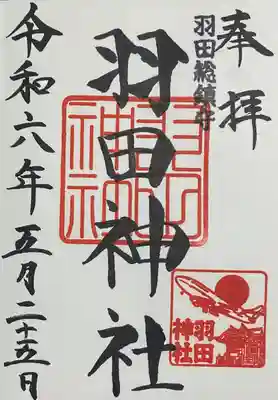 奉拝
羽田総鎮守
羽田神社
羽田神社
令和六年五月二十五日
羽田
神社